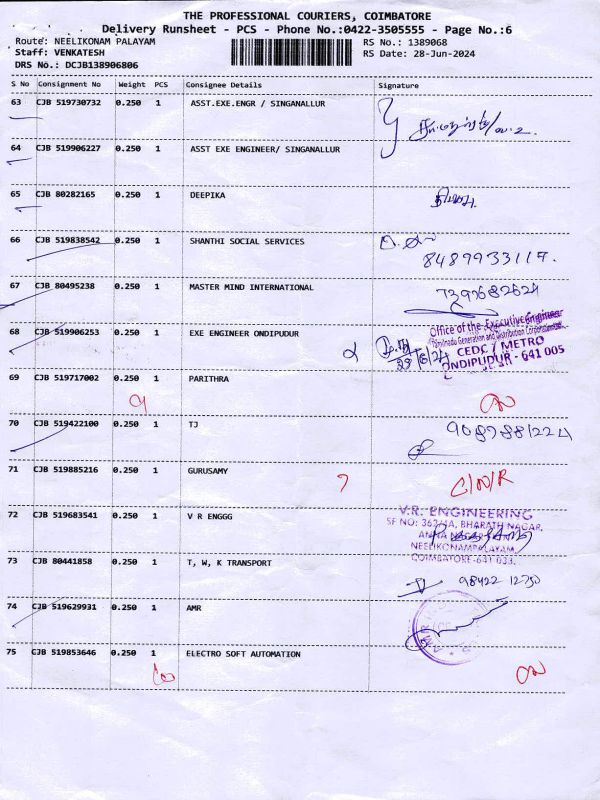 THE PROFESSIONAL COURIERS, COIMBATORE
Delivery Runsheet - PCS - Phone No.:0422-3505555 - Page No.:6
Route: NEELIKONAM PALAYAM RS No.: 1389068
Staff: VENKATESH RS Date: 28-Jun-2024
DRS No.: DCJB138906806
S No Consignment No Weight PCS Consignee Details Signature
63 CJB 519730732 0.250 1 ASST.EXE.ENGR / SINGANALLUR
64 CJB 519906227 0.250 1 ASST EXE ENGINEER/ SINGANALLUR
65 CJB 80282165 0.250 1 DEEPIKA
66 CJB 519838542 0.250 1 SHANTHI SOCIAL SERVICES
8489933117.
67 CJB 80495238 0.250 1 MASTER MIND INTERNATIONAL 7299682624
68 CJB 519906253 0.250 1 EXE ENGINEER ONDIPUDUR
Office of the Executive Engineer
Tamilnadu Generation and Distribution Corporation Ltd
CEDC / METRO
ONDIPUDUR - 641 005
69 CJB 519717002 0.250 1 PARITHRA
70 CJB 519422100 0.250 1 TJ 9087881224
71 CJB 519885216 0.250 1 GURUSAMY C/N/R
72 CJB 519683541 0.250 1 V R ENGGG
V.R. ENGINEERING
SF NO: 362/4A, BHARATH NAGAR,
ANNA NAGAR
NEELIKONAMPALAYAM,
COIMBATORE-641 033.
73 CJB 80441858 0.250 1 T, W, K TRANSPORT 98422 12750
74 CJB 519629931 0.250 1 AMR
75 CJB 519853646 0.250 1 ELECTRO SOFT AUTOMATION